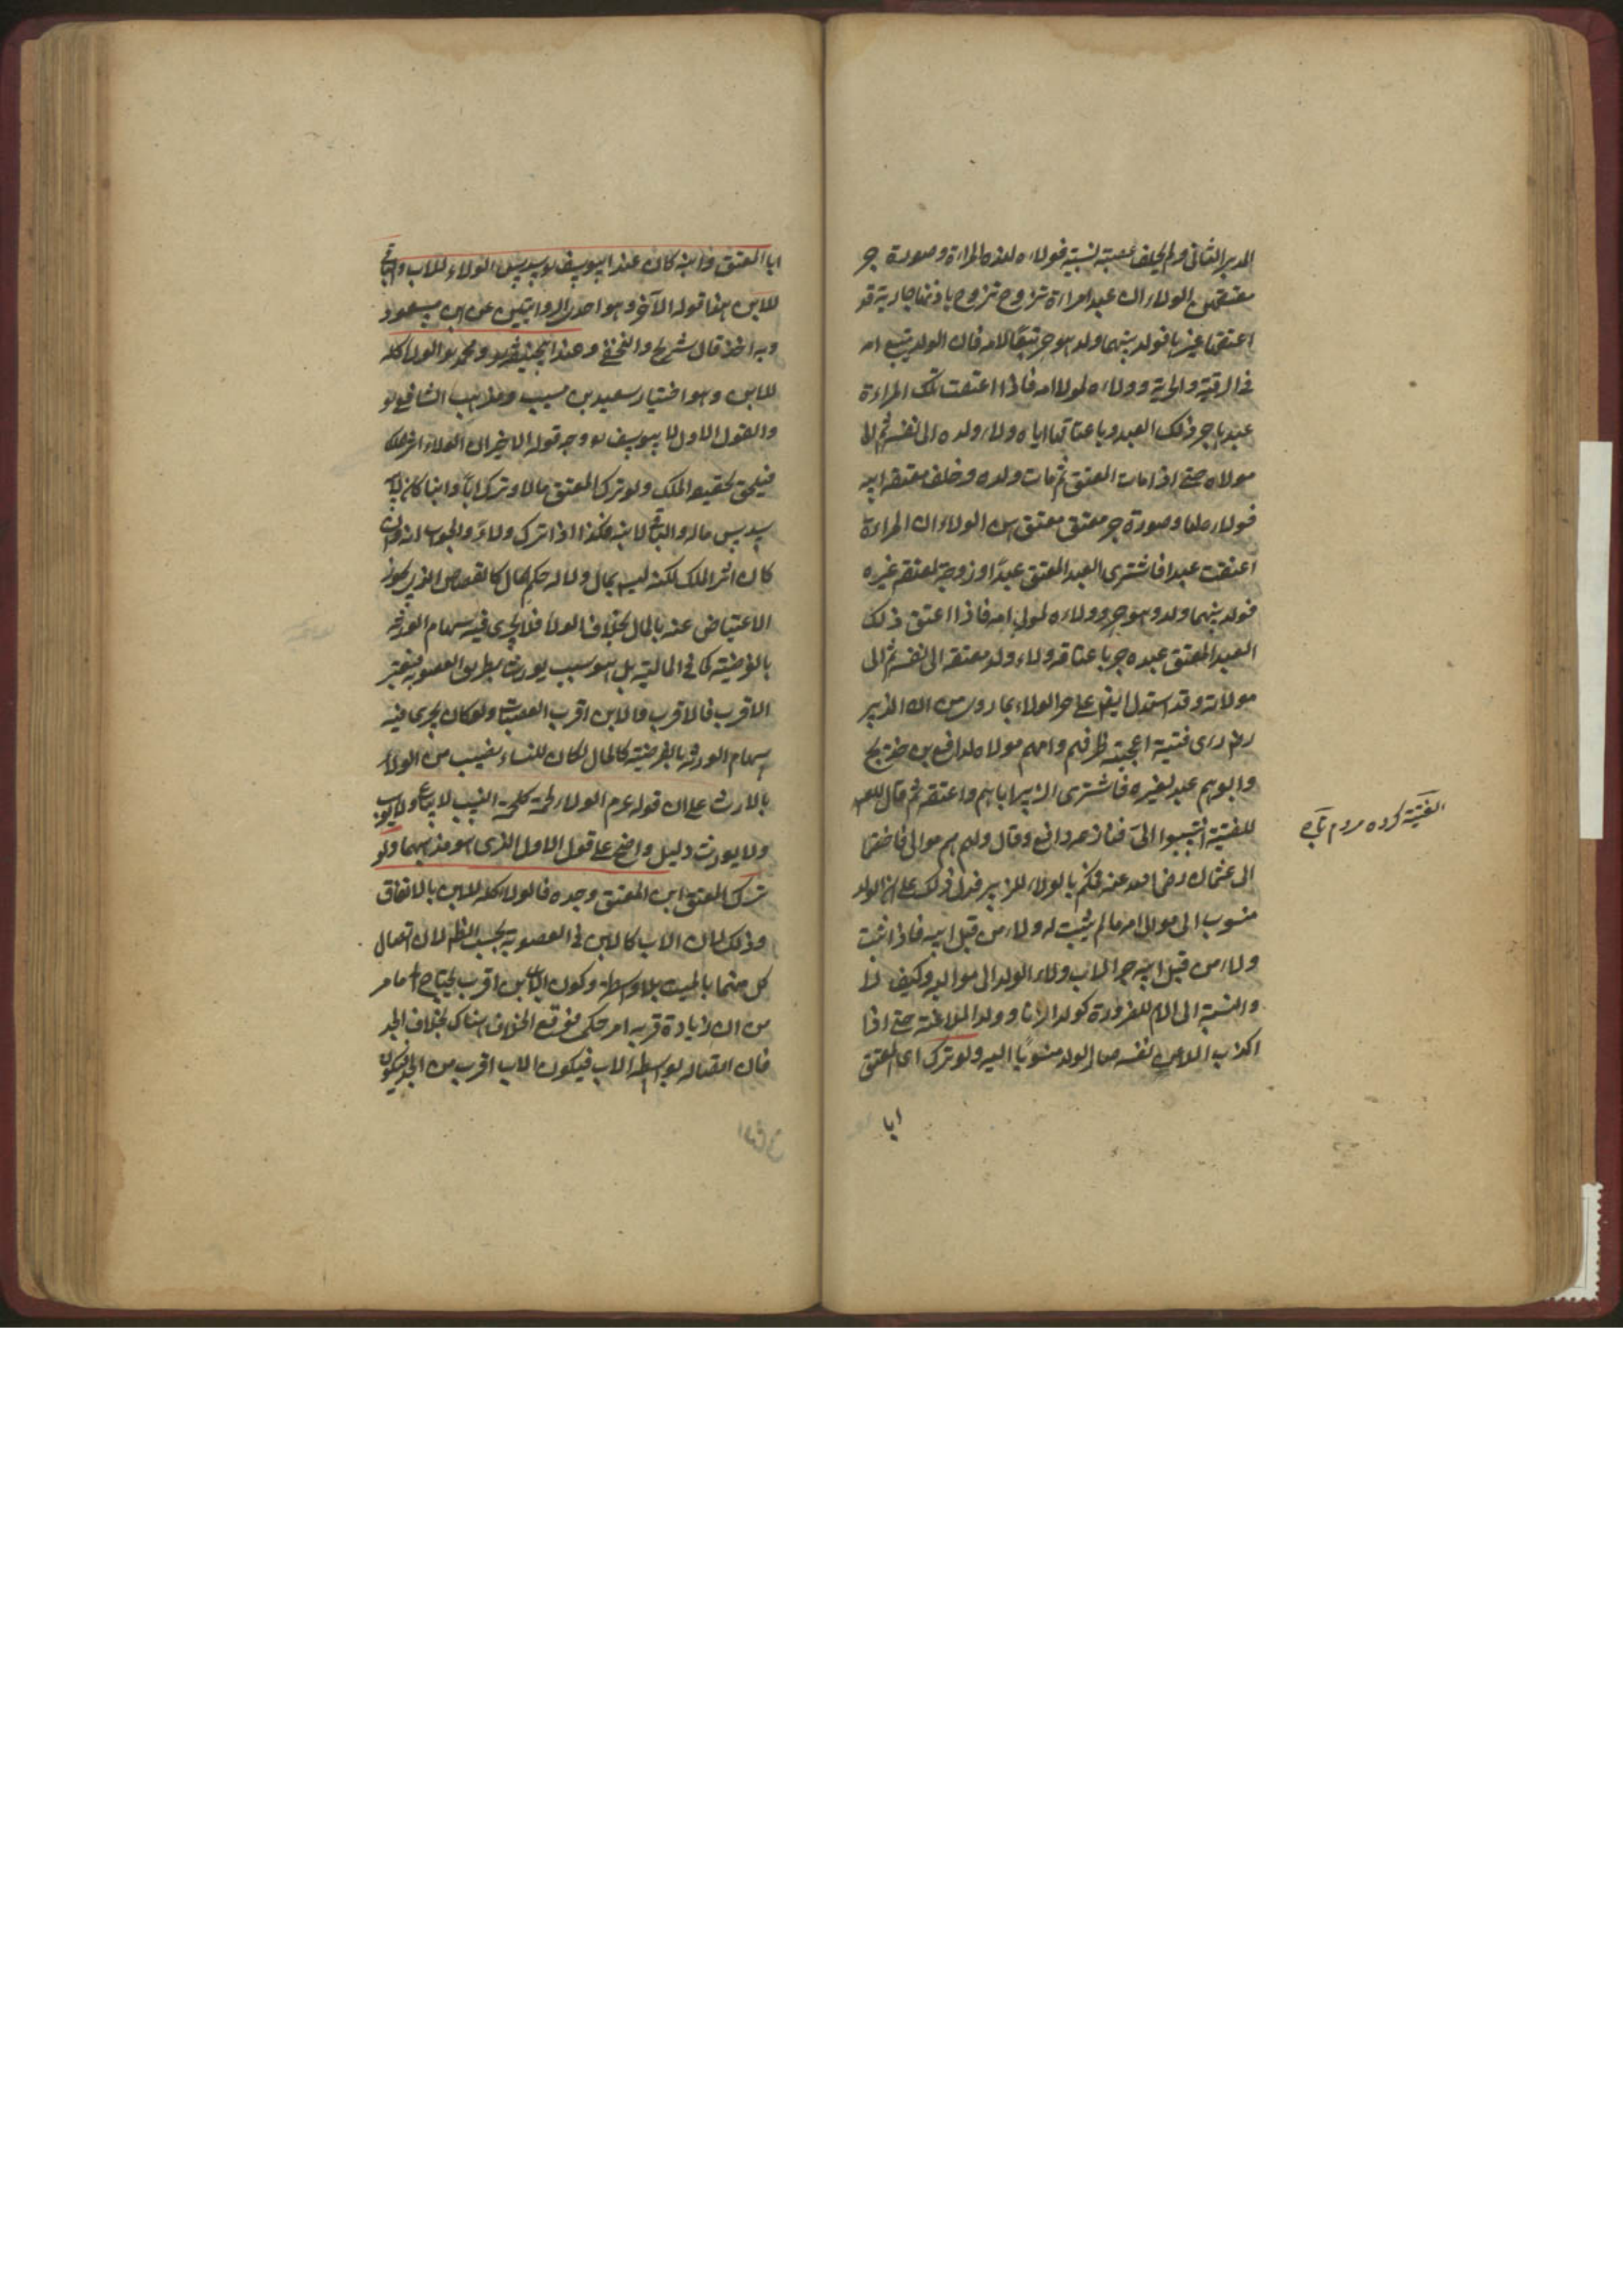 المدبر الثانى ولم يخلف عصبة نسبية فولاءه لهذه المراءة وصورة جر
معتقهن الولاء ان عبد امراءة تزوج باذنها جارية قد
اعتقها غيرها فولد بينهما ولد هو حر تبعًا لامه فان الولد يتبع امه
فى الرقية والحرية وولاءه لمولا امه فاذا اعتقت تلك المراءة
عبدها جر ذلك العبد وباعتاقها اياه ولاء ولده الى نفسه ثم الى
مولاه حتى اذا مات المعتق ثم مات ولده وخلف معتقة ابيه
فولاءه لها وصورة جر معتق معتقهن الولاء ان امراءة
اعتقت عبدا فاشترى العبد المعتق عبدًا وزوجه بمعتقة غيره
فولد بينهما ولد وهو حر وولاءه لمولى امه فاذا اعتق ذلك
العبد المعتق عبده جر باعتاقه ولاء ولد معتقه الى نفسه ثم الى
مولاته وقد استدل ايضا على جر الولاء بما روى من ان الزبير
رضـ راى فتية اعجبته ظرافتهم وامهم مولاة لرافع بن خديج
وابوهم عبد لغيره فاشترى الزبير اباهم واعتقه ثم قال
للفتية انتسبوا الىّ فنازعه رافع وقال بل هم موالى فاختصما
الى عثمان رضى الله عنه فحكم بالولاء للزبير فدل ذلك على ان الولد
منسوب الى موالى امه ما لم يثبت له ولاء من قبل ابيه فاذا ثبت
ولاء من قبل ابيه جر الاب ولاء الولد الى مواليه وكيف لا
والنسبة الى الام للضرورة كولد الزنا وولد الملاعنة حتى اذا
اكذب الملاعن نفسه صار الولد منسوبًا اليه ولو ترك اى المعتق
ابا
الفتية كرده مردم
ابا المعتق وابنه كان عند ابيوسف سدس الولاء للاب والباقى
للابن هذا قوله الآخر وهو احدى الروايتين عن ابن مسعود
وبه اخذ قال شريح والنخعى وعند ابيحنيفة ومحمد الولاء كله
للابن وهو اختيار سعيد بن مسيب ومذهب الشافعى
والقول الاول لابيوسف ووجه قوله الاخير ان الولاء اثر الملك
فيلحق بحقيقة الملك ولو ترك المعتق مالا وترك ابًا وابنا كان لابيه
سدس ماله والباقى لابنه فكذا اذا ترك ولاءً والجواب انه وان
كان اثر الملك لكنه ليس بمال ولا له حكم المال كالقصاص الذى يجوز
الاعتياض عنه بالمال بخلاف الولاء فلا يجرى فيه سهام الورثة
بالفرضية كما فى المالية بل هو سبب يورث بطريق العصوبة فيعتبر
الاقرب فالاقرب والابن اقرب العصبات ولو كان يجرى فيه
سهام الورثة بالفرضية كالمال لكان للنساء نصيب من الولاء
بالارث على ان قوله عم الولاء لحمة كلحمة النسب لا يباع ولا يوهب
ولا يورث دليل واضح على قول الاول الذى هو مذهبهما ولو
ترك المعتق ابن المعتق وجده فالولاء كله للابن بالاتفاق
وذلك لان الاب كالابن فى العصوبة بحسب الظ لان اتصال
كل منهما بالميت بلا واسطة وكون الابن اقرب يحتاج الى ما مر
من ان زيادة قربه امر حكمى فوقع الخلاف هناك بخلاف الجد
فان اتصاله بواسطة الاب فيكون الاب اقرب من الجد فيكون